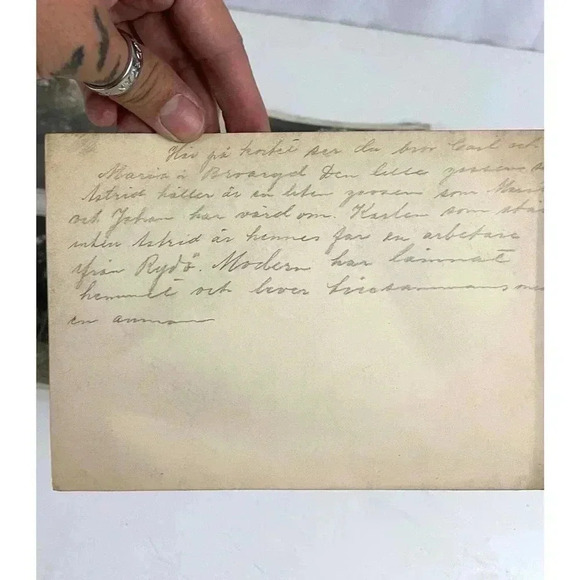 Här på kortet ser du bror Carl och
Maria i Broaryd Den lille gossen
Astrid håller är en liten gosse som
och Johan har vård om. Karlen som står
inten Astrid är hennes far en arbetare
ifrån Rydö. Modern har lämnat
hemmet och lever tillsammans med
en annan